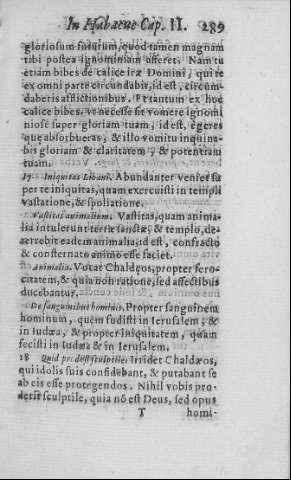 In Habacuc Cap. II. 289
gloriosum futurum, quod tamen magnam
tibi postea ignominiam afferet. Nam tu
etiam bibes de calice iræ Domini, qui te
ex omni parte circundabit, id est, circum-
daberis afflictionibus. Et tantum ex hoc
calice bibes, ut necesse sit vomere ignomi
niosè super gloriam tuam, id est, egeres
quæ absorbueras, & illo vomitu inquina-
bis gloriam & claritatem, & potentiam
tuam.
17 Iniquitas Libani. Abundanter veniet su
per te iniquitas, quam exercuisti in templi
vastatione, & spoliatione.
Vastitas animalium. Vastitas, quam anima-
lia intulerunt terræ sanctæ, & templo, de-
terrebit eadem animalia, id est, confracto
& consternato animo esse faciet.
Animalia. Vocat Chaldæos, propter fero-
citatem, & quia non ratione, sed affectibus
ducebantur.
De sanguinibus hominis. Propter sanguinem
hominum, quem fudisti in Ierusalem, &
in Iudæa, & propter iniquitatem, quam
fecisti in Iudæa & in Ierusalem.
18 Quid prodest sculptile? Irridet Chaldæos,
qui idolis suis confidebant, & putabant se
ab eis esse protegendos. Nihil vobis pro-
derit sculptile, quia nō est Deus, sed opus
T homi-